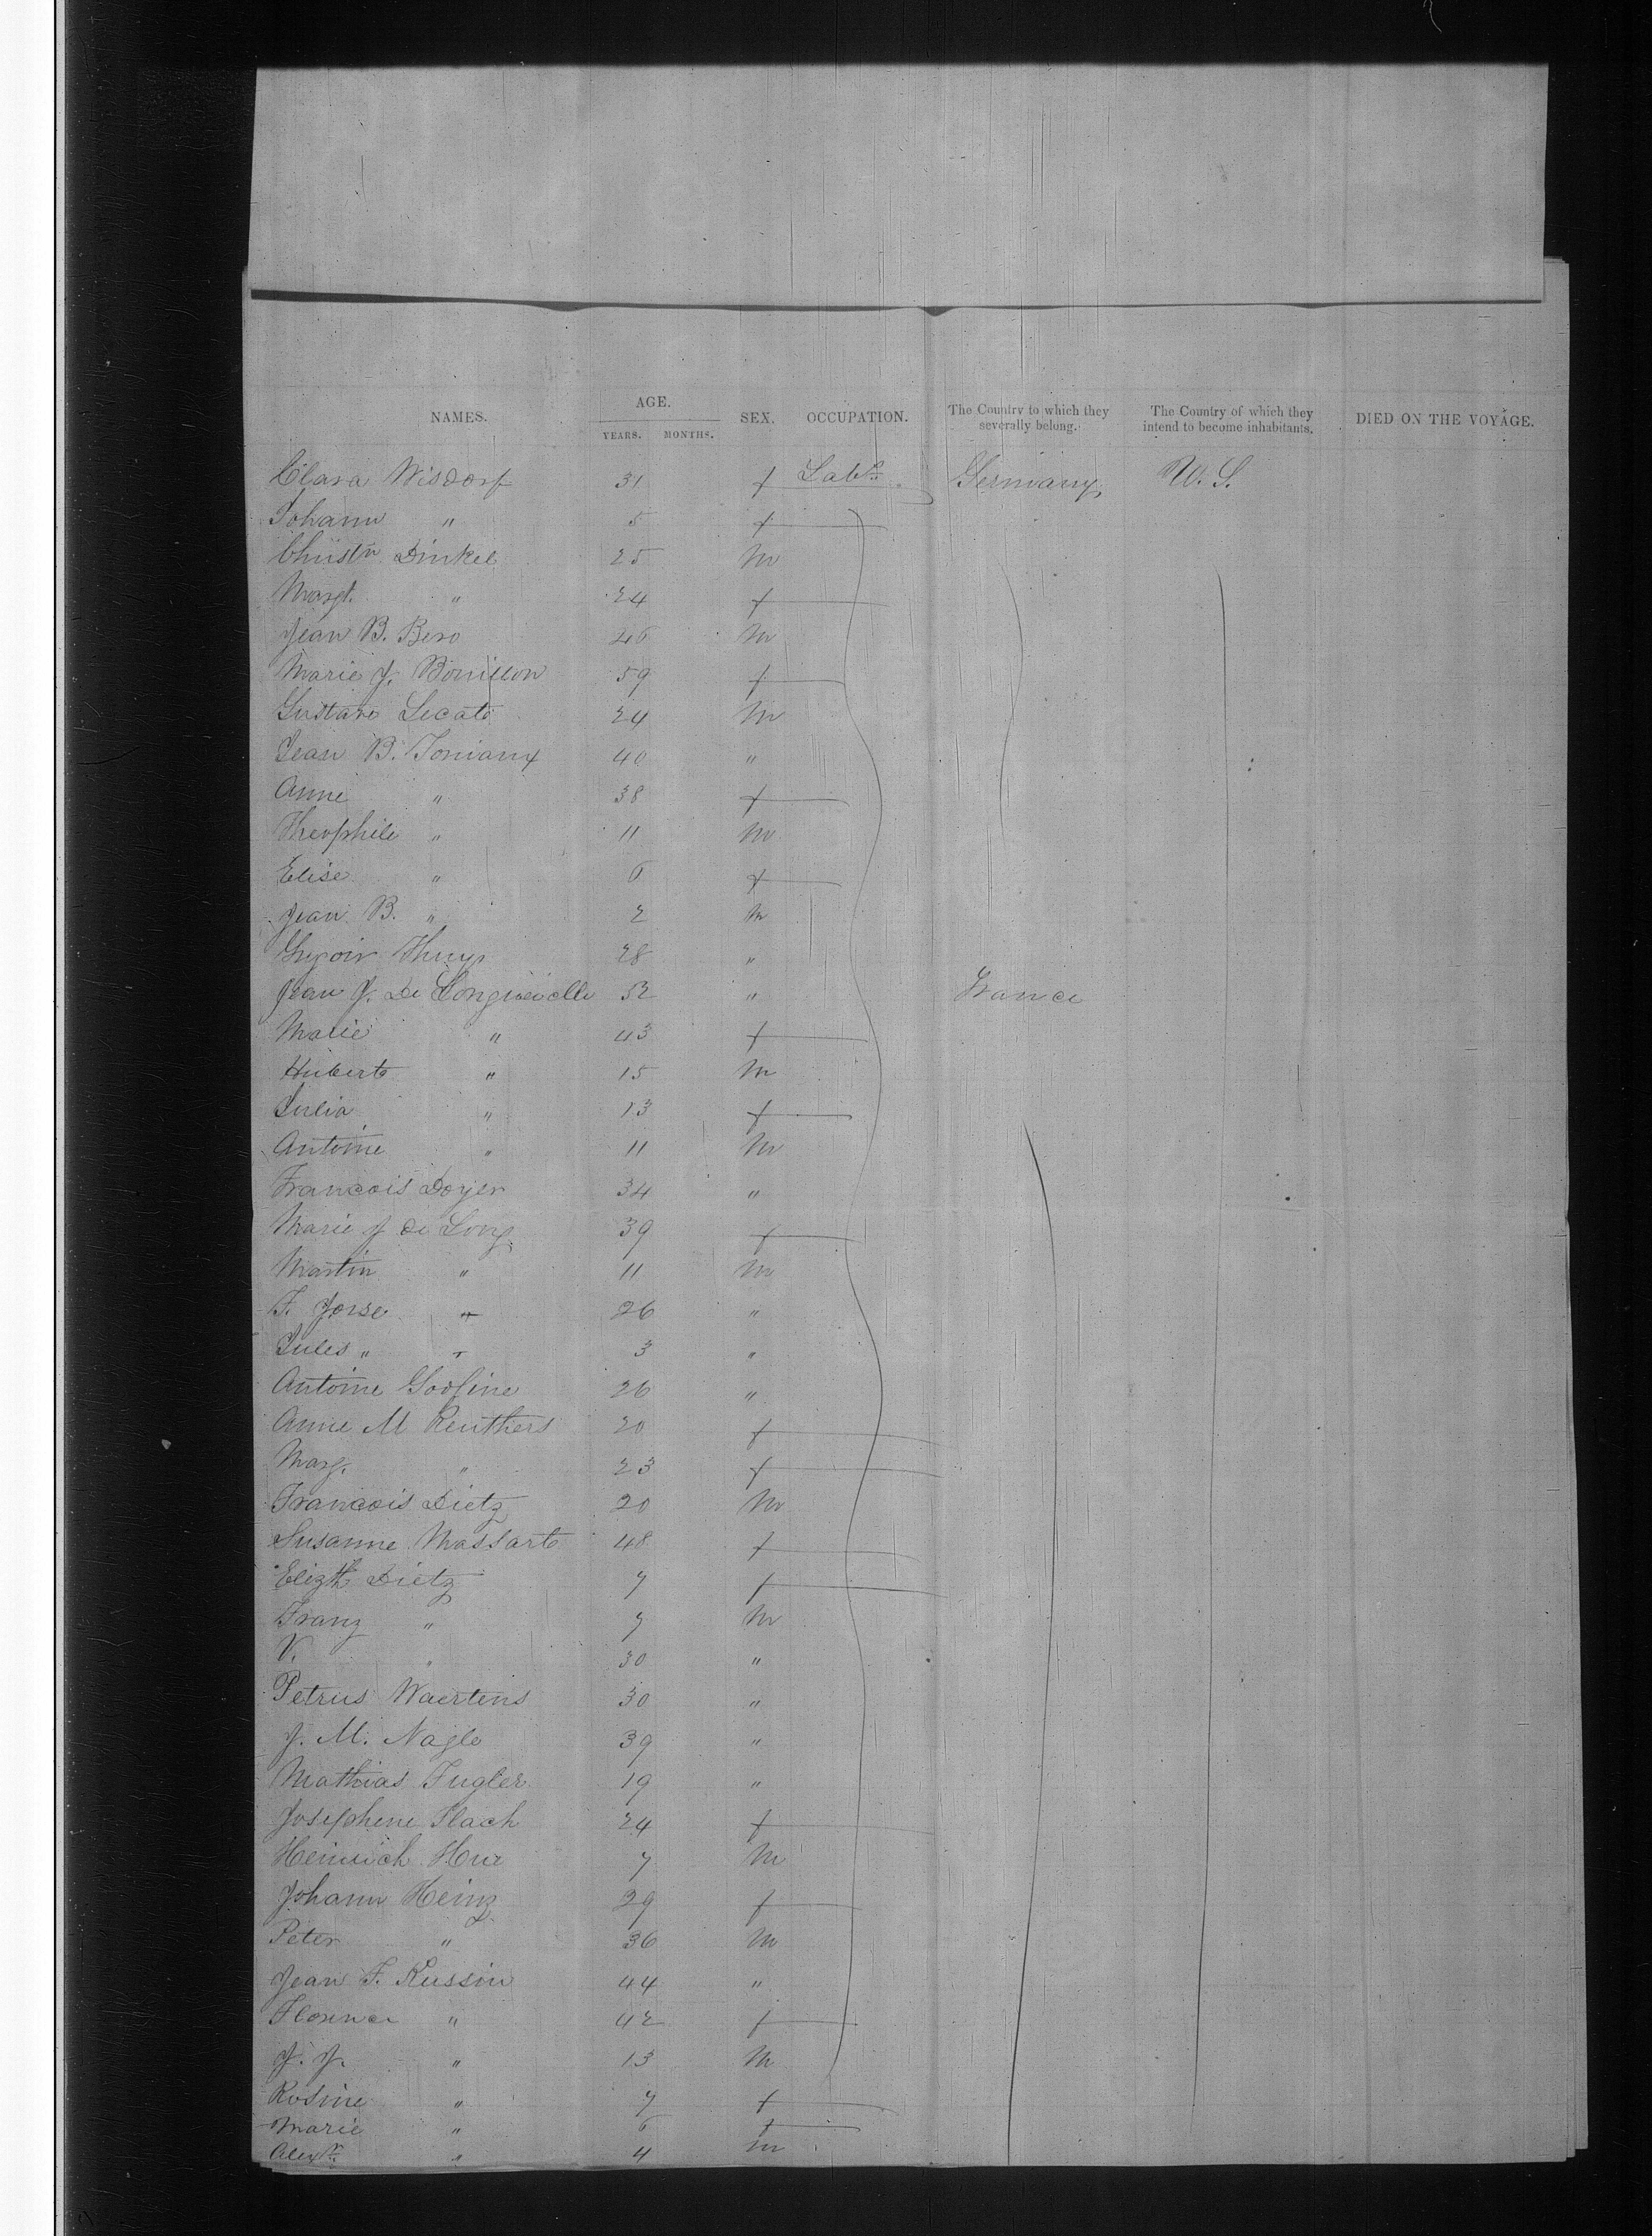 NAMES. AGE. YEARS. MONTHS. SEX. OCCUPATION. The Country to which they severally belong. The Country of which they intend to become inhabitants. DIED ON THE VOYAGE.
Clara Wisdorf 31 f Labr. Germany U. S.
Johann " 5 f
Christn Dinkel 25 m
Margt. " 24 f
Jean B. Bero 46 m
Marie J. Bouillon 59 f
Gustave Lecate 24 m
Jean B. Toniaux 40 "
Anne " 38 f
Theophile " 11 m
Elise " 6 f
Jean B. " 2 m
Gregoir Thuys 28 "
Jean J. De Longueville 52 " France
Marie " 43 f
Hubert " 15 m
Julia " 13 f
Antoine " 11 m
Francois Doyer 34 "
Marie J de Long 39 f
Martin " 11 m
F. Jorse " 26 "
Jules " " 3 "
Antoine Godfine 26 "
Anne M Reuthers 20 f
Marg. " 23 f
Francois Dietz 20 m
Susanne Massart 48 f
Elizth Dietz 7 f
Franz " 7 m
V. " 30 "
Petrus Waertens 30 "
J. M. Nagle 39 "
Mathias Fugler 19 "
Josephene Flach 24 f
Heinrich Hur 7 m
Johann Heinz 29 f
Peter " 36 m
Jean F. Russin 44 "
Florence " 42 f
J. J. " 13 m
Rosine " 7 f
Marie " 6 f
Alexr. " 4 m